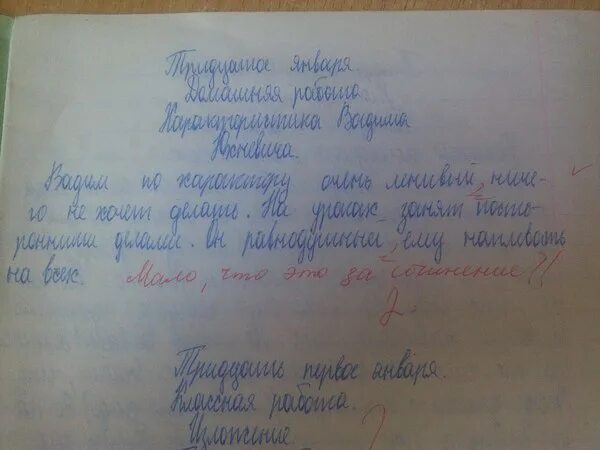 Тридцатое января.
Домашняя работа
Характеристика Вадима
Юхневича.
Вадим по характеру очень ленивый, ниче-
го не хочет делать. На уроках занят посто-
ронними делами. Он равнодушный, ему наплевать
на всех. Мало, что это за сочинение?!
2
Тридцать первое января.
Классная работа.
Изложение.